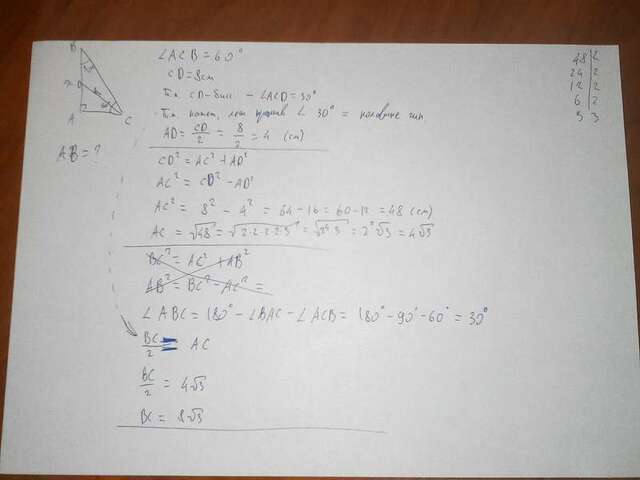 B
D
A
C
AB = ?
∠ACB = 60°
CD = 8см
Т.к. CD - бисс - ∠ACD = 30°
Т.к. катет, леж против ∠ 30° = половине гип
AD = CD/2 = 8/2 = 4 (см)
CD² = AC² + AD²
AC² = CD² - AD²
AC² = 8² - 4² = 64 - 16 = 60 - 12 = 48 (см)
AC = √48 = √2·2·2·2·3 = √2⁴·3 = 2²√3 = 4√3
BC² = AC² + AB²
AB² = BC² - AC² =
∠ABC = 180° - ∠BAC - ∠ACB = 180° - 90° - 60° = 30°
BC/2 = AC
BC/2 = 4√3
BC = 8√3
48 | 2
24 | 2
12 | 2
6 | 2
3 | 3